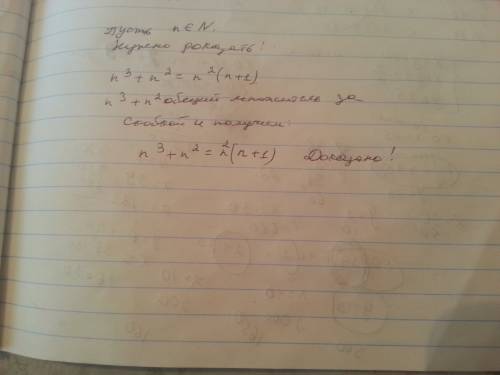 Пусть n ∈ N.
Нужно доказать!
n³ + n² = n²(n+1)
n³ + n² общий множитель за
скобкой и получим:
n³ + n² = n²(n+1) Доказано!